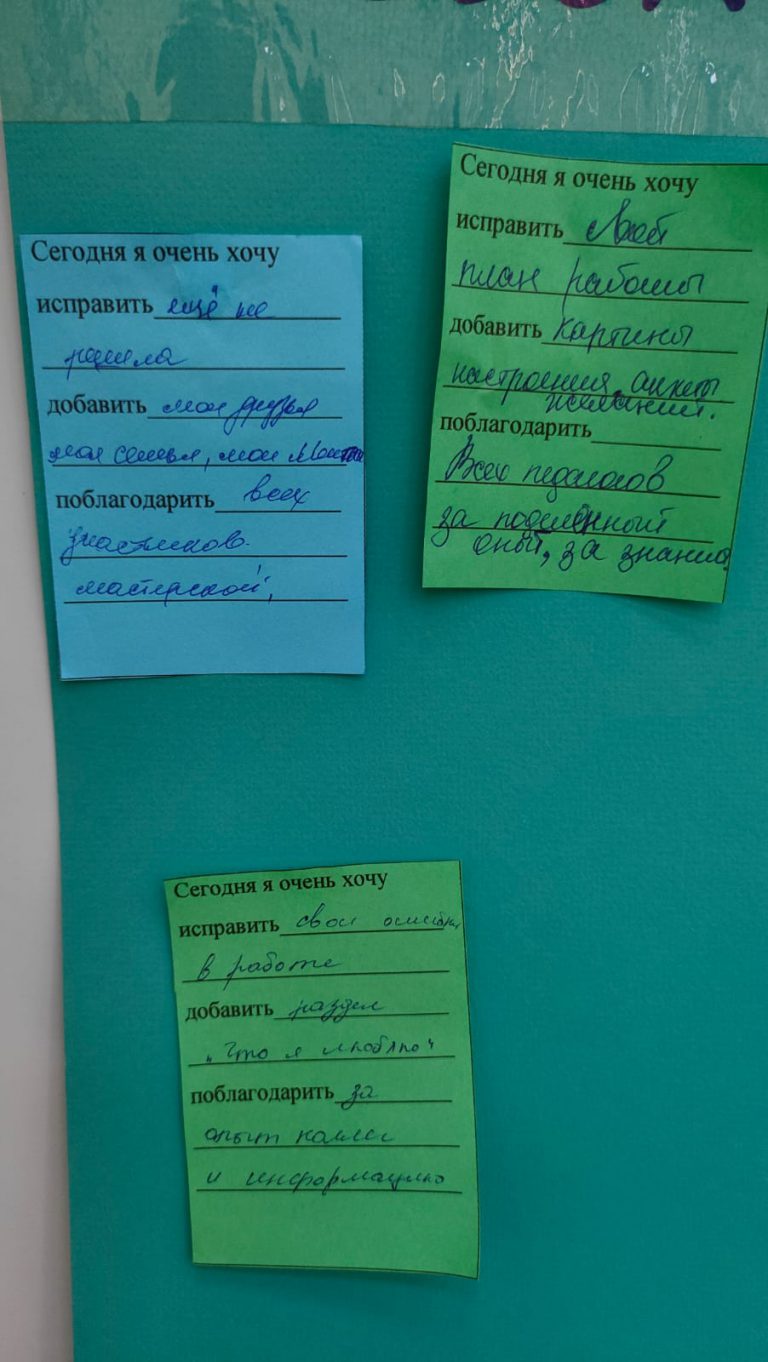 Сегодня я очень хочу
исправить ещё не
решила
добавить мои друзья
моя семья, мои
поблагодарить всех
участников
мастерской,
Сегодня я очень хочу
исправить Мой
план работы
добавить картины
настроения, анкеты
желаний.
поблагодарить
Всех педагогов
за поделенный
опыт, за знания.
Сегодня я очень хочу
исправить свои ошибки
в работе
добавить раздел
"Что я люблю"
поблагодарить за
опыт коллег
и информацию